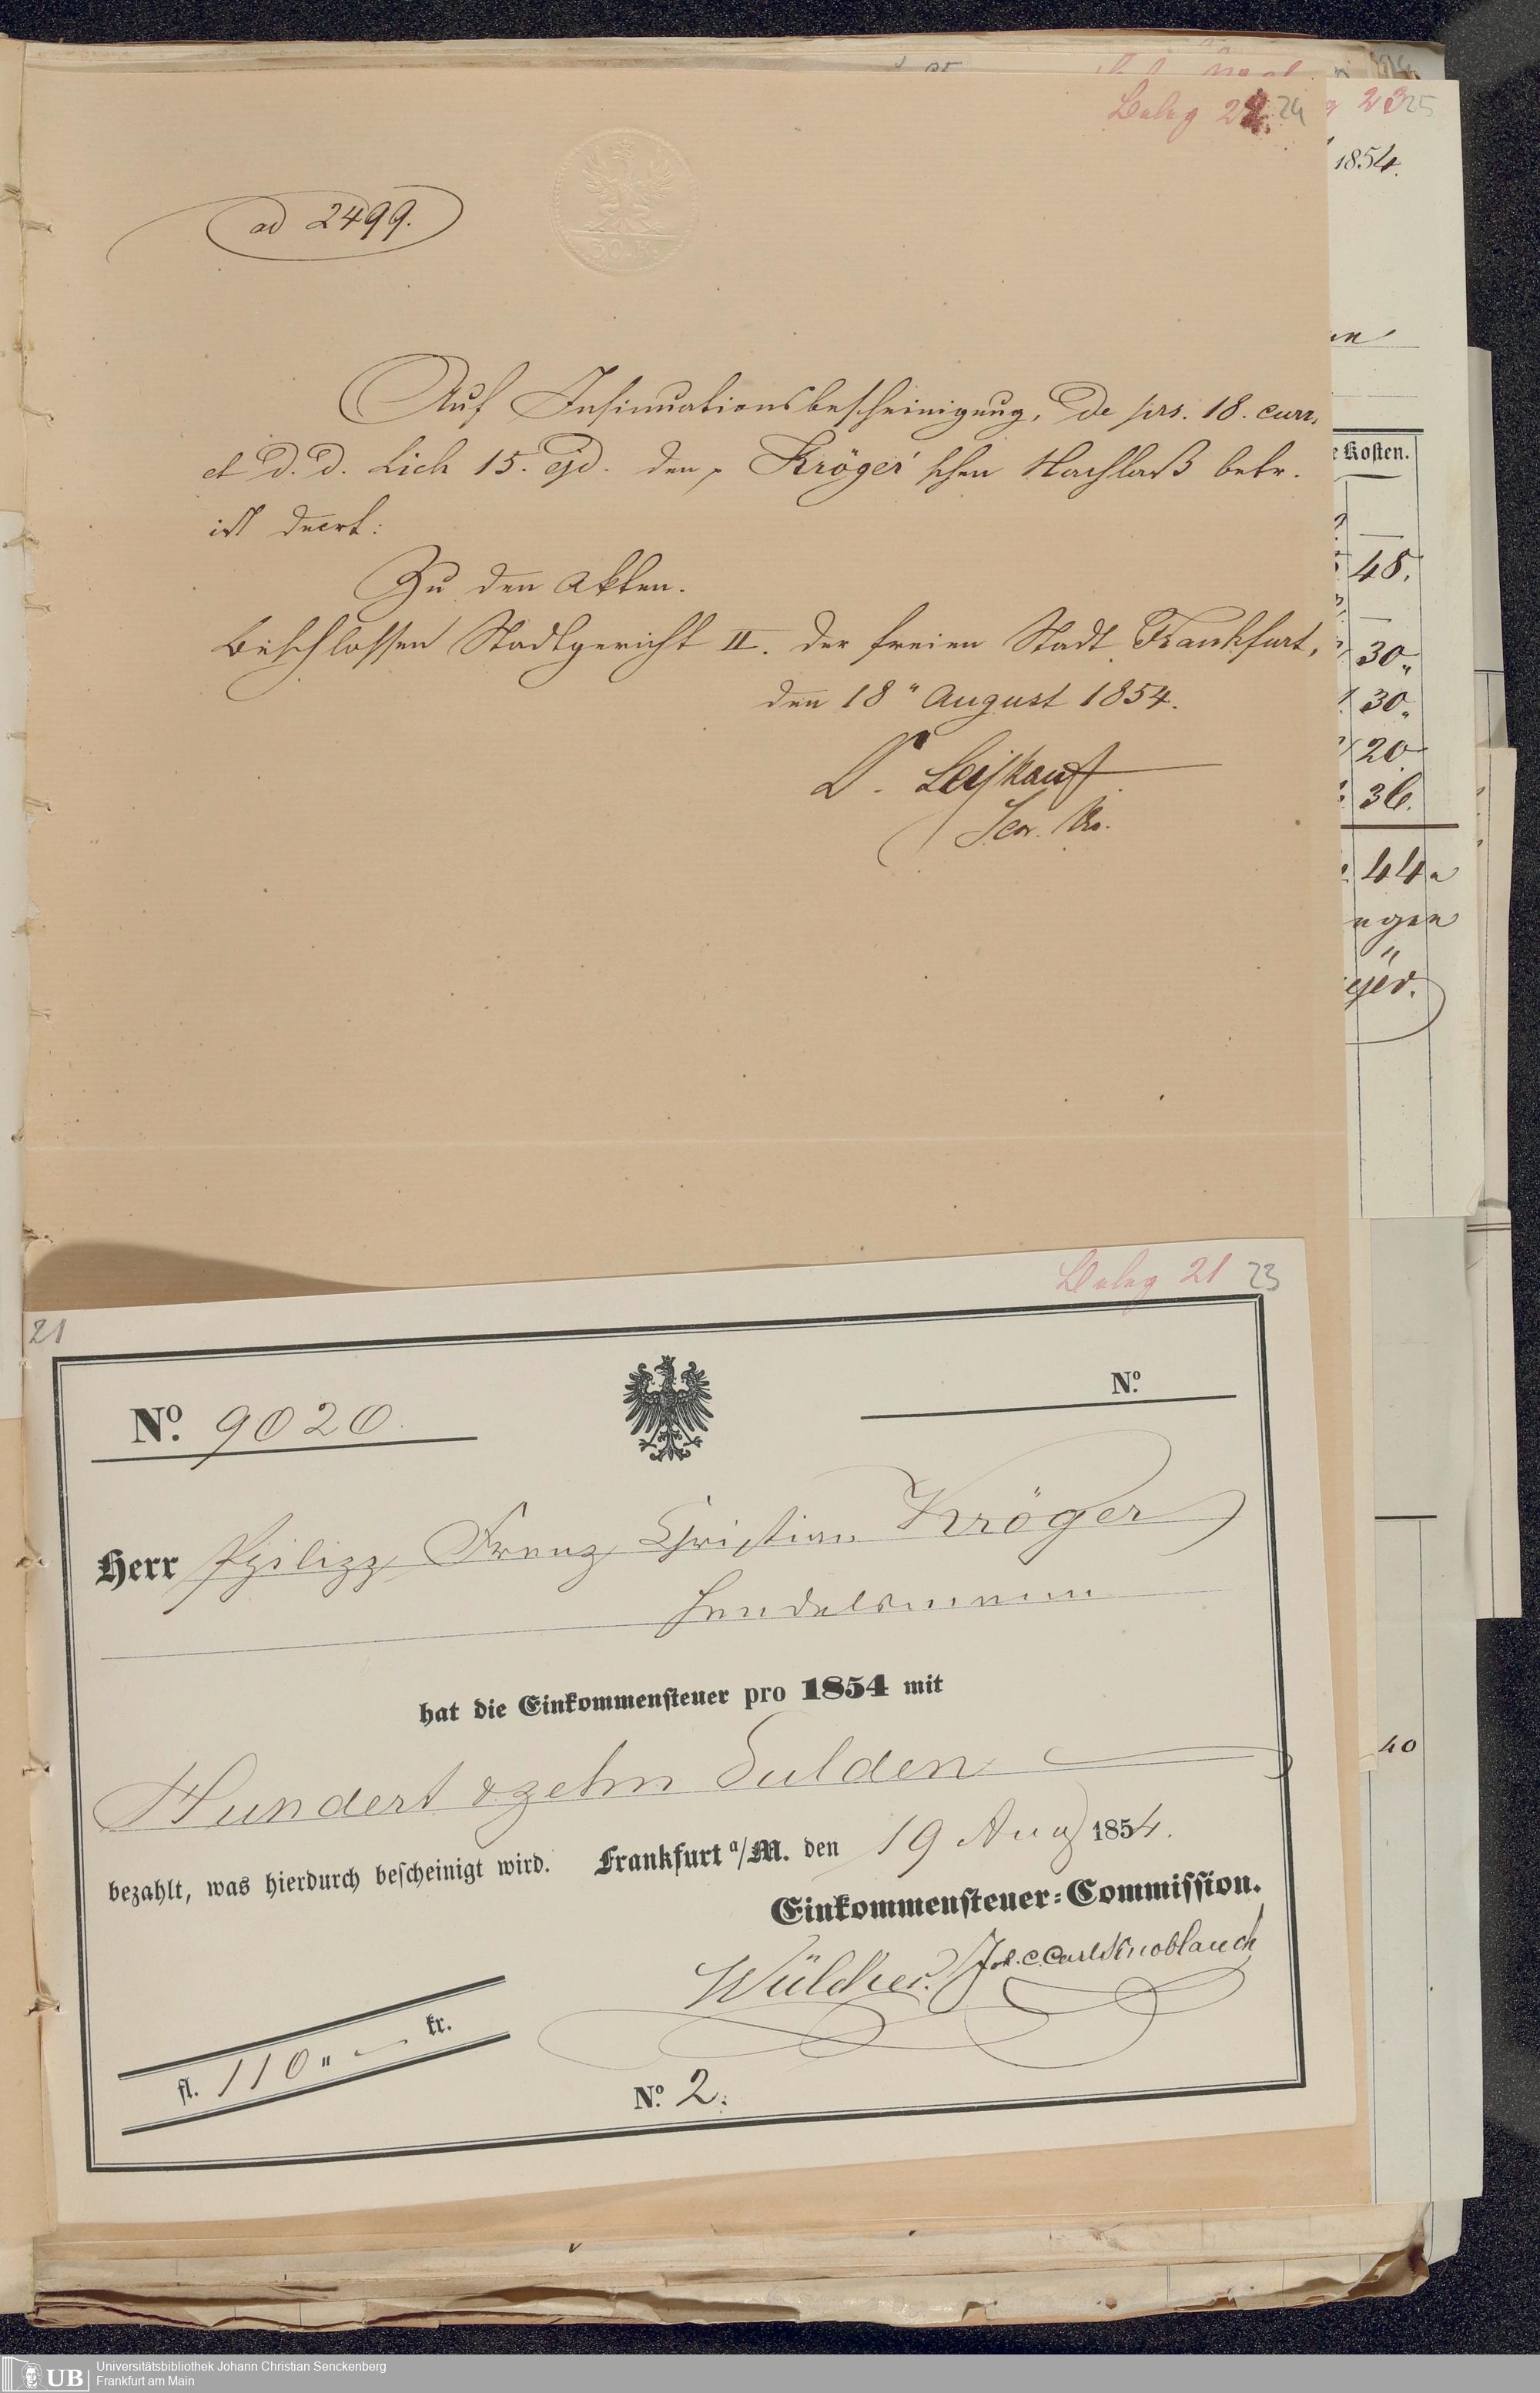 Beleg 22. 24
23 25
1854.
ad 2499.
30. K.
Auf Insinuationsbescheinigung, de prs. 18. curr.
et d. d. Lich 15. ejd. den Kröger'schen Nachlaß betr.
ist decret:
Zu den Akten.
Beschlossen Stadtgericht II. der freien Stadt Frankfurt,
den 18" August 1854.
Dr.
Kosten.
48.
30.
30.
20.
36.
44
Beleg 21 23
21
No. 9020.
No.
Herr Philipp Franz Christian Kröger
Handelsmann
hat die Einkommensteuer pro 1854 mit
Hundert & zehn Gulden
bezahlt, was hierdurch bescheinigt wird. Frankfurt a/M. den 19 Aug 1854.
Einkommensteuer-Commission.
Wülcker. Joh. C. Carl Knoblauch
fl. 110 " — kr.
No. 2.
40
UB
Universitätsbibliothek Johann Christian Senckenberg
Frankfurt am Main